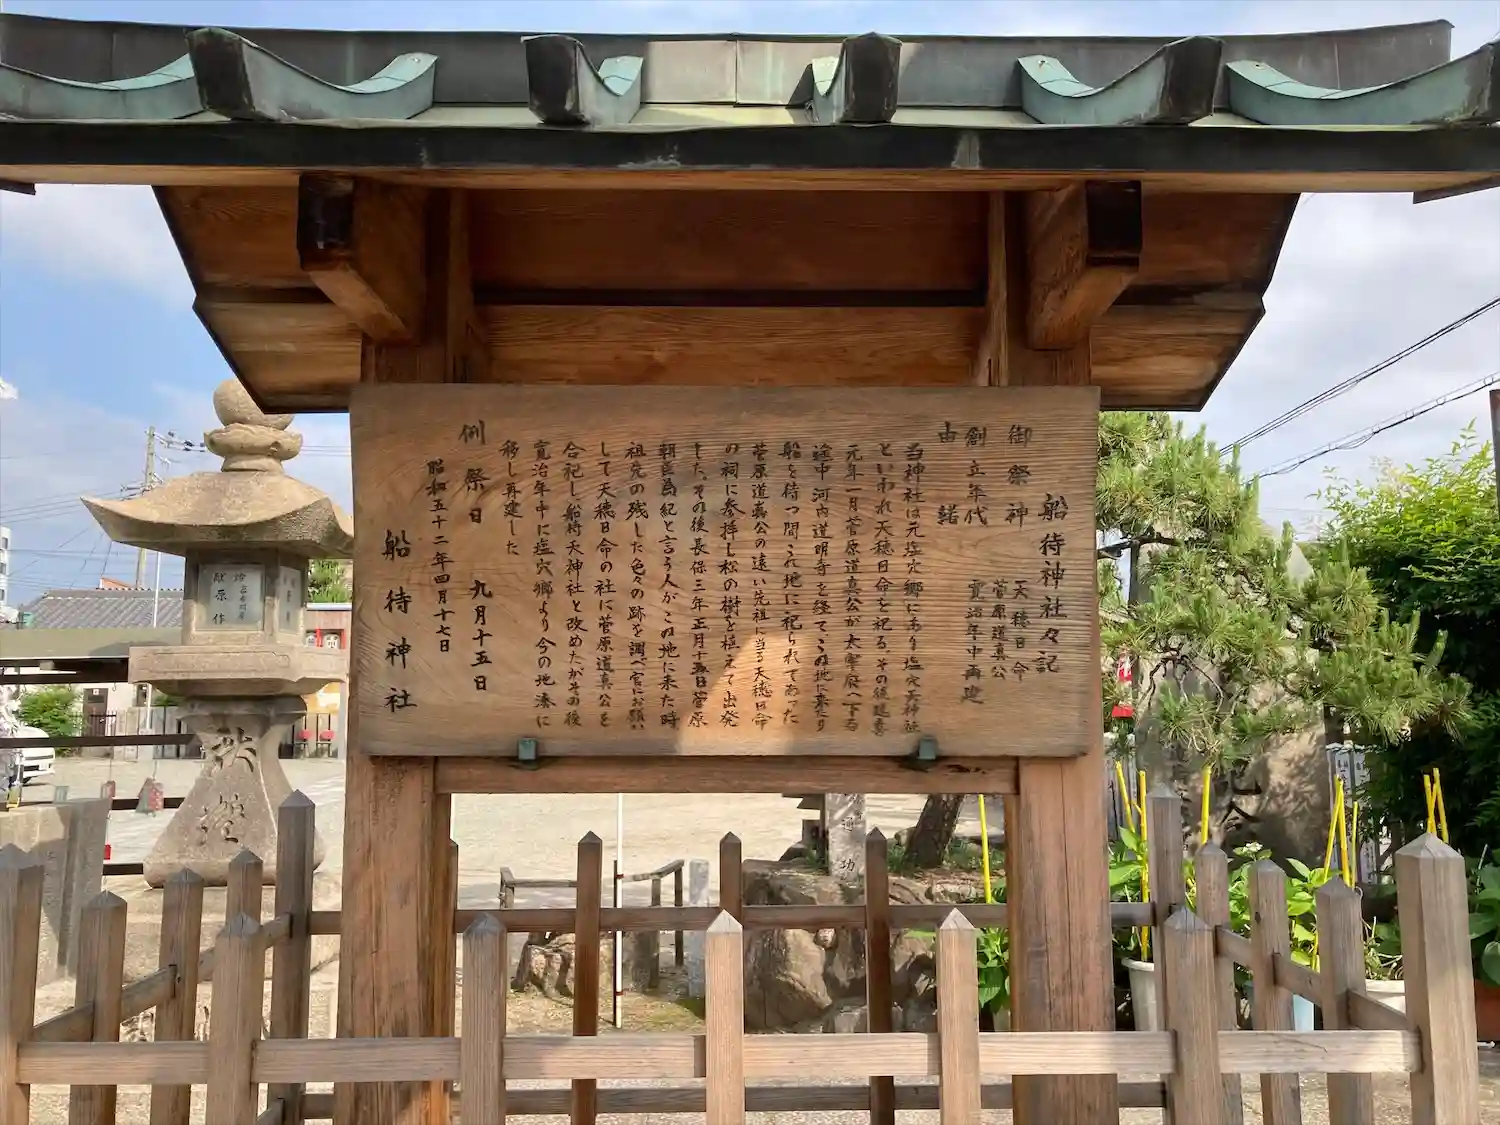 船待神社々記
御祭神 天穂日命
菅原道真公
創立年代 寛治年中再建
由諸
当神社は元塩穴郷にあり塩穴天神社
といわれ天穂日命を祀る。その後延喜
元年一月菅原道真公が太宰府へ下る
途中河内道明寺を経てこの地に来たり
船を待つ間この地に祀られてあった
菅原道真公の遠い先祖に当る天穂日命
の祠に参拝し松の樹を植えて出発
した。その後長保三年正月十五日菅原
朝臣為紀と言う人がこの地に来た時
祖先の残した色々の跡を調べ官にお願い
して天穂日命の社に菅原道真公を
合祀し、船待天神社と改めたがその後
寛治年中に塩穴郷より今の地湊に
移し再建した
例祭日 九月十五日
昭和五十二年四月十七日
船待神社
献